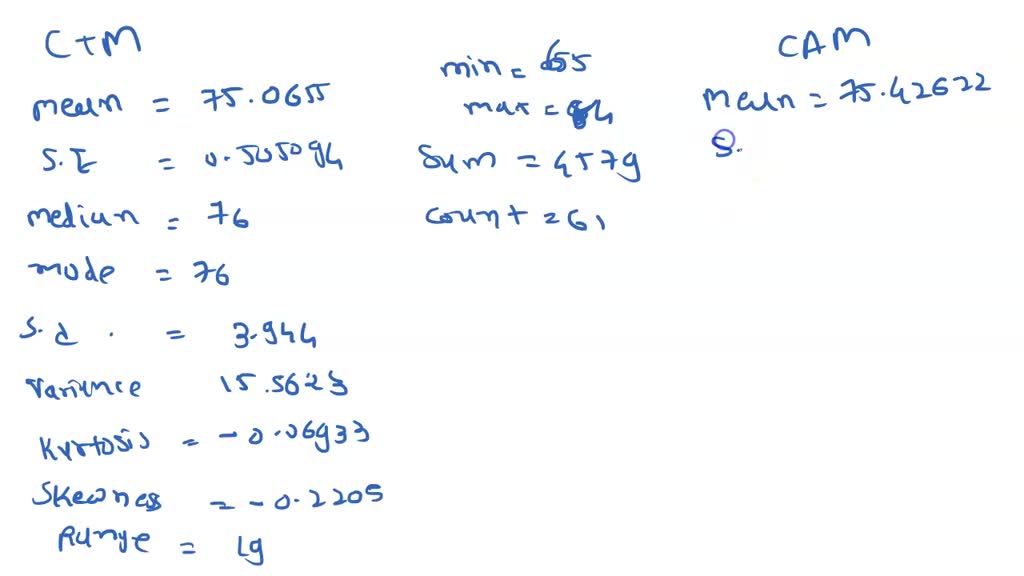 CTM
mean = 75.0655
S.E = 0.505094
median = 76
mode = 76
S.d. = 3.944
Variance 15.5623
Kurtosis = -0.06933
Skewness = -0.2205
Range = 19
min = 65
max = 84
Sum = 4579
count = 61
CAM
mean = 75.42622
S.